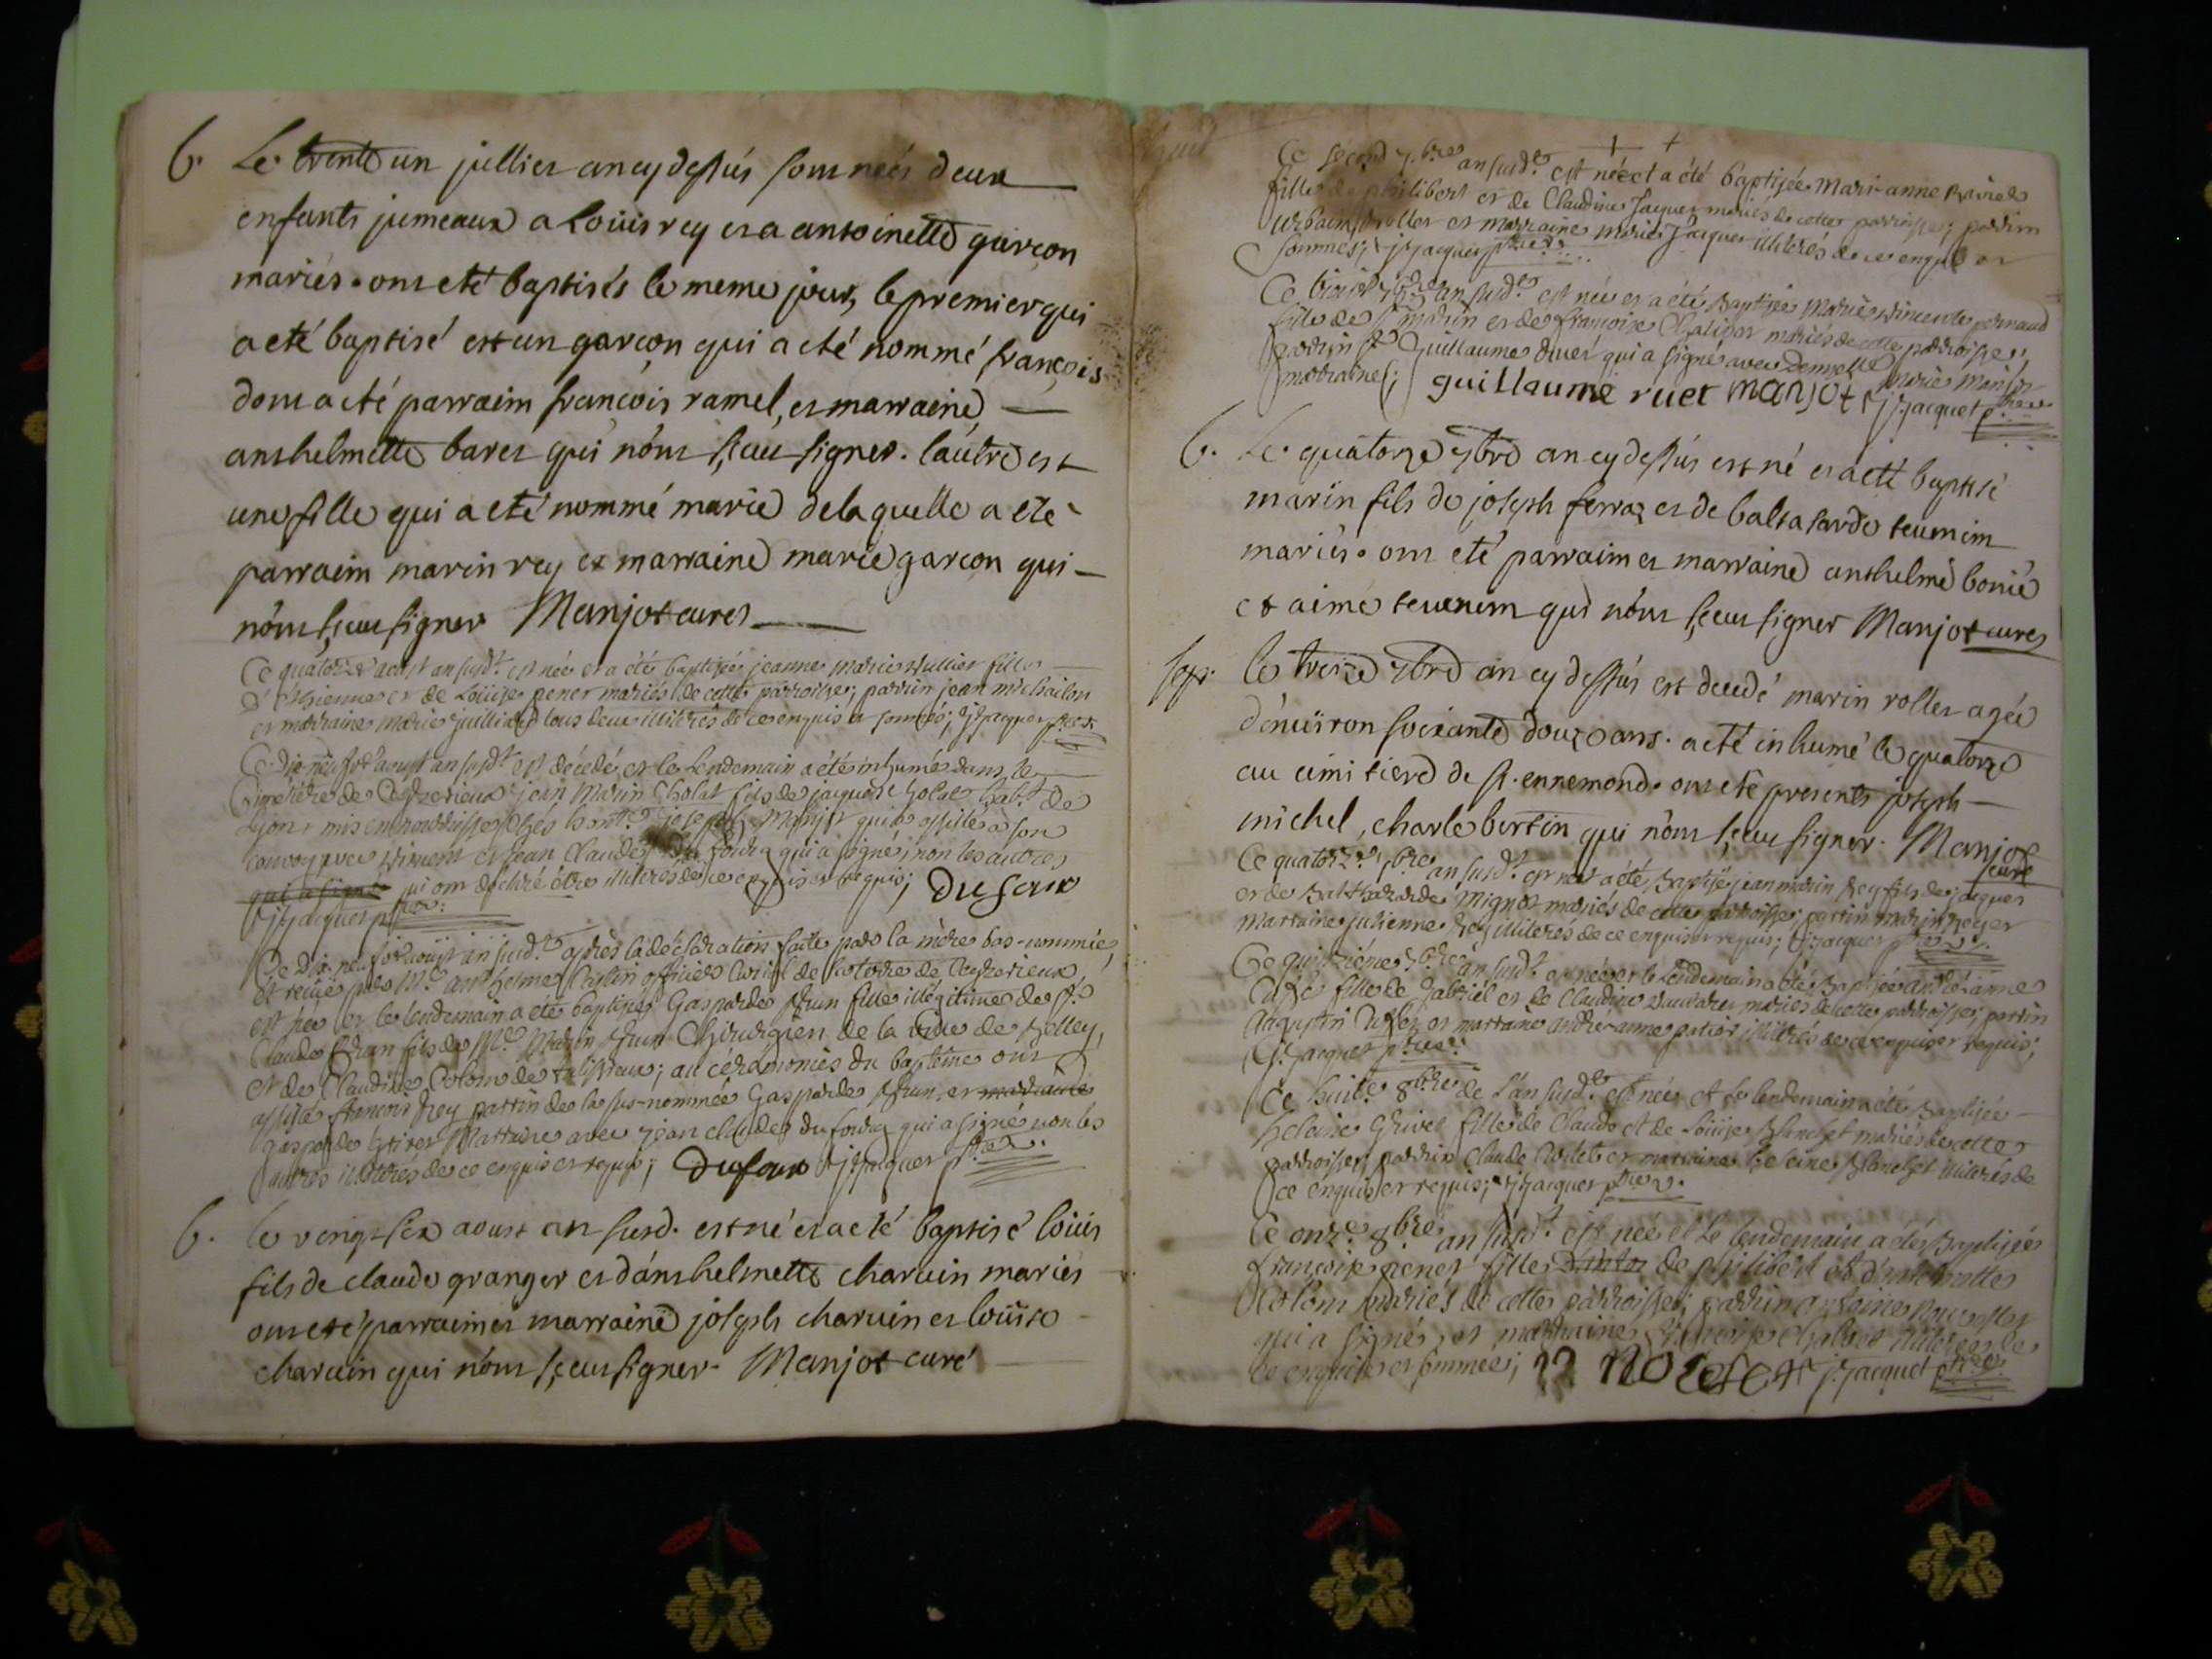 b. Le trente un jullier an cy dessus sont neés deux
enfants jumeaux a Loüis rey et a antoinette garçon
mariés. ont eté baptisés le meme jour, le premier qui
a eté baptisé est un garçon qui a eté nommé françois
dont a eté parraim françois ramel, et marraine
anthelmette baret qui n'ont sçeu signer. l'autre est
une fille qui a eté nommé marie de laquelle a eté
parraim marin rey et marraine marie garcon qui
n'ont sçeu signer Manjot curés
Ce quatorze aoust an susd.t est née et a été baptisée jeanne marie
d'Etienne et de Loüise penet mariés de cette parroisse; parrin jean michailon
et marraine marie tous deux illiterés de ce enquis et sommés; J. Jacquet ptre
Ce Dix-neuf d'aoust an susd.t est décédé et le Lendemain a été inhumé dans le
Cimetière de jean Marin Cholat fils de jacques Cholat hab.t de
Lyon, mis en nourrisse chés hon.te joseph Manjot qui a assisté a son
convoy avec vincent et jean Claude Du fourg qui a signé, non les autres
qui a signé qui ont déclaré être illiterés de ce enquis et requis; Dufour
J. Jacquet ptre
Ce Dix-neuf d'aoust an susd.t après la déclaration faite par la mère bas-nommée,
et reçüe par M.e anthelme officier de
est née et le lendemain a été baptisée Gasparde fille illégitime de S.r
Claude fils de M.e Marin Chirurgien de la Ville de Belley,
et de Claudine Colom de; au céremonies du baptême ont
assisté françois Rey parrin de la sus-nommée Gasparde et marraine
Gasparde Marraine avec jean claude du fourg qui a signé non les
autres illiterés de ce enquis et requis; Dufour J. Jacquet ptre
b. le vingt six aoust an susd. est né et a eté baptisé loüis
fils de claude granger et d'anthelmette charuin mariés
ont eté parraim et marraine joseph charuin et loüise
charuin qui n'ont sçeu signer. Manjot curé
Ce second 7.bre an susd.t est née et a été baptisée Mari-anne
fille de philibert et de Claudine Jacquet mariés de cette parroisse; parrim
Urbain rollet et marraine marie Jacquet illiterés de ce enquis et
sommés; J. Jacquet ptre
Ce 7.bre an susd.t est née et a été Baptisée Marie vincente pernaud
fille de S.r Marin et de françoise mariés de cette parroisse;
parrin S.r Guillaume qui a signé avec Demoiselle Marie Manjot
marraine; guillaume ruet manjot J. Jacquet ptre
b. Le quatorze 7bre an cy dessus est né et a eté baptisé
marin fils de joseph ferraz et de baltasarde teunim
mariés. ont eté parraim et marraine anthelme bonié
et aime teuenim qui n'ont sçeu signer Manjot curés
sep. le treize 7bre an cy dessus est decedé marin rollet agée
d'enuiron soixante douze ans. a eté inhumé le quatorze
au cimitiere de st. ennemond. ont eté presents joseph
michel, charle bertin qui n'ont sçeu signer. Manjot
curé
Ce quatorze 7.bre an susd.t est né et a été Baptisé jean marin Rey fils de jacques
et de Balthazarde Mignot mariés de cette parroisse; parrin marin Rey et
marraine julienne Rey illiterés de ce enquis et requis; J. Jacquet ptre
Ce quinzième 7.bre an susd.t est née et le Lendemain a été Baptisée andré-anne
fille de Gabriel et de Claudine mariés de cette parroisse; parrin
Augustin et marraine andré-anne illiterés de ce enquis et requis;
J. Jacquet ptre
Ce huit.e 8.bre de L'an susd.t est née et le lendemain a été Baptisée
heleine Grivet fille de Claude et de Loüise Blanchet mariés de cette
parroisse; parrin Claude et marraine heleine Blanchet illiterés de
ce enquis et requis; J. Jacquet ptre
Ce onz.e 8.bre an susd.t est née et Le lendemain a été Baptisée
françoise penet fille de philibert et d'anthelmette
Colom mariés de cette parroisse; parrin antoine
qui a signé, et marraine françoise illiterée de
ce enquise et sommée; J. Jacquet ptre